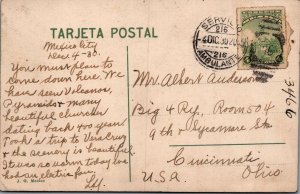 TARJETA POSTAL
Mexico City
Dec 4-30.
You must plan to
come down here. We
have seen Volcanos,
Pyramids & many
beautiful churches
dating back 400 years.
Took a trip to Vera Cruz
& the scenery is beautiful.
It was so warm today we
had on electric fan.
J. G. Mexico
SERVICIO
216
4 DIC. 30
216
AMBULANTE
Mr. Albert Anderson
Big 4 Ry, Room 504
9th & Sycamore Sts
Cincinnati
Ohio
U.S.A.
3466